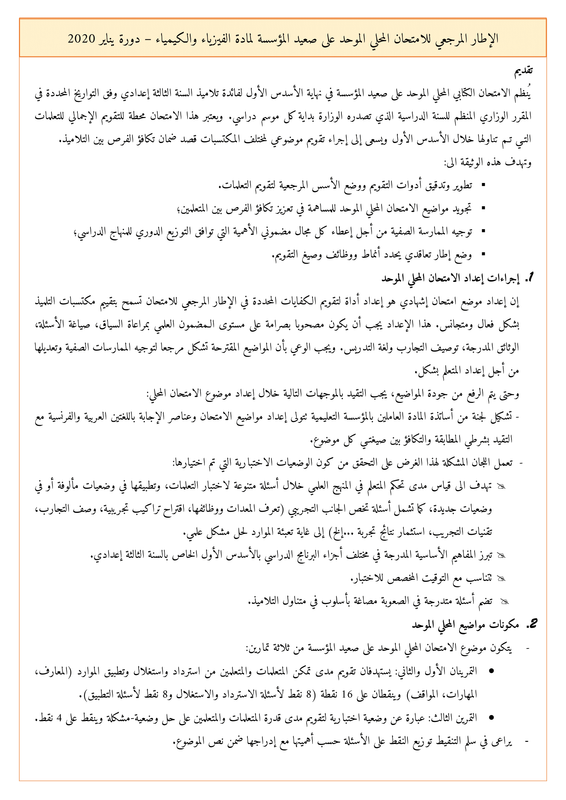 الإطار المرجعي للامتحان المحلي الموحد على صعيد المؤسسة لمادة الفيزياء والكيمياء – دورة يناير 2020
تقديم
يُنظم الامتحان الكتابي المحلي الموحد على صعيد المؤسسة في نهاية الأسدس الأول لفائدة تلاميذ السنة الثالثة إعدادي وفق التواريخ المحددة في
المقرر الوزاري المنظم للسنة الدراسية الذي تصدره الوزارة بداية كل موسم دراسي. ويعتبر هذا الامتحان محطة للتقويم الإجمالي للتعلمات
التي تم تناولها خلال الأسدس الأول ويسعى إلى إجراء تقويم موضوعي لمختلف المكتسبات قصد ضمان تكافؤ الفرص بين التلاميذ.
وتهدف هذه الوثيقة الى:
▪ تطوير وتدقيق أدوات التقويم ووضع الأسس المرجعية لتقويم التعلمات.
▪ تجويد مواضيع الامتحان المحلي الموحد للمساهمة في تعزيز تكافؤ الفرص بين المتعلمين؛
▪ توجيه الممارسة الصفية من أجل إعطاء كل مجال مضموني الأهمية التي توافق التوزيع الدوري للمنهاج الدراسي؛
▪ وضع إطار تعاقدي يحدد أنماط ووظائف وصيغ التقويم.
1. إجراءات إعداد الامتحان المحلي الموحد
إن إعداد موضع امتحان إشهادي هو إعداد أداة لتقويم الكفايات المحددة في الإطار المرجعي للامتحان تسمح بتقييم مكتسبات التلميذ
بشكل فعال ومتجانس. هذا الإعداد يجب أن يكون مصحوبا بصرامة على مستوى المضمون العلمي بمراعاة السياق، صياغة الأسئلة،
الوثائق المدرجة، توصيف التجارب ولغة التدريس. ويجب الوعي بأن المواضيع المقترحة تشكل مرجعا لتوجيه الممارسات الصفية وتعديلها
من أجل إعداد المتعلم بشكل.
وحتى يتم الرفع من جودة المواضيع، يجب التقيد بالموجهات التالية خلال إعداد موضوع الامتحان المحلي:
- تشكيل لجنة من أساتذة المادة العاملين بالمؤسسة التعليمية تتولى إعداد مواضيع الامتحان وعناصر الإجابة باللغتين العربية والفرنسية مع
التقيد بشرطي المطابقة والتكافؤ بين صيغتي كل موضوع.
- تعمل اللجان المشكلة لهذا الغرض على التحقق من كون الوضعيات الاختبارية التي تم اختيارها:
تهدف الى قياس مدى تحكم المتعلم في المنهج العلمي خلال أسئلة متنوعة لاختبار التعلمات، وتطبيقها في وضعيات مألوفة أو في
وضعيات جديدة، كما تشمل أسئلة تخص الجانب التجريبي (تعرف المعدات ووظائفها، اقتراح تراكيب تجريبية، وصف التجارب،
تقنيات التجريب، استثمار نتائج تجربة ...إلخ) إلى غاية تعبئة الموارد لحل مشكل علمي.
تبرز المفاهيم الأساسية المدرجة في مختلف أجزاء البرنامج الدراسي بالأسدس الأول الخاص بالسنة الثالثة إعدادي.
تتناسب مع التوقيت المخصص للاختبار.
تضم أسئلة متدرجة في الصعوبة مصاغة بأسلوب في متناول التلاميذ.
2. مكونات مواضيع المحلي الموحد
- يتكون موضوع الامتحان المحلي الموحد على صعيد المؤسسة من ثلاثة تمارين:
• التمرينان الأول والثاني: يستهدفان تقويم مدى تمكن المتعلمات والمتعلمين من استرداد واستغلال وتطبيق الموارد (المعارف،
المهارات، المواقف) وينقطان على 16 نقطة (8 نقط لأسئلة الاسترداد والاستغلال و8 نقط لأسئلة التطبيق).
• التمرين الثالث: عبارة عن وضعية اختبارية لتقويم مدى قدرة المتعلمات والمتعلمين على حل وضعية-مشكلة وينقط على 4 نقط.
- يراعى في سلم التنقيط توزيع النقط على الأسئلة حسب أهميتها مع إدراجها ضمن نص الموضوع.